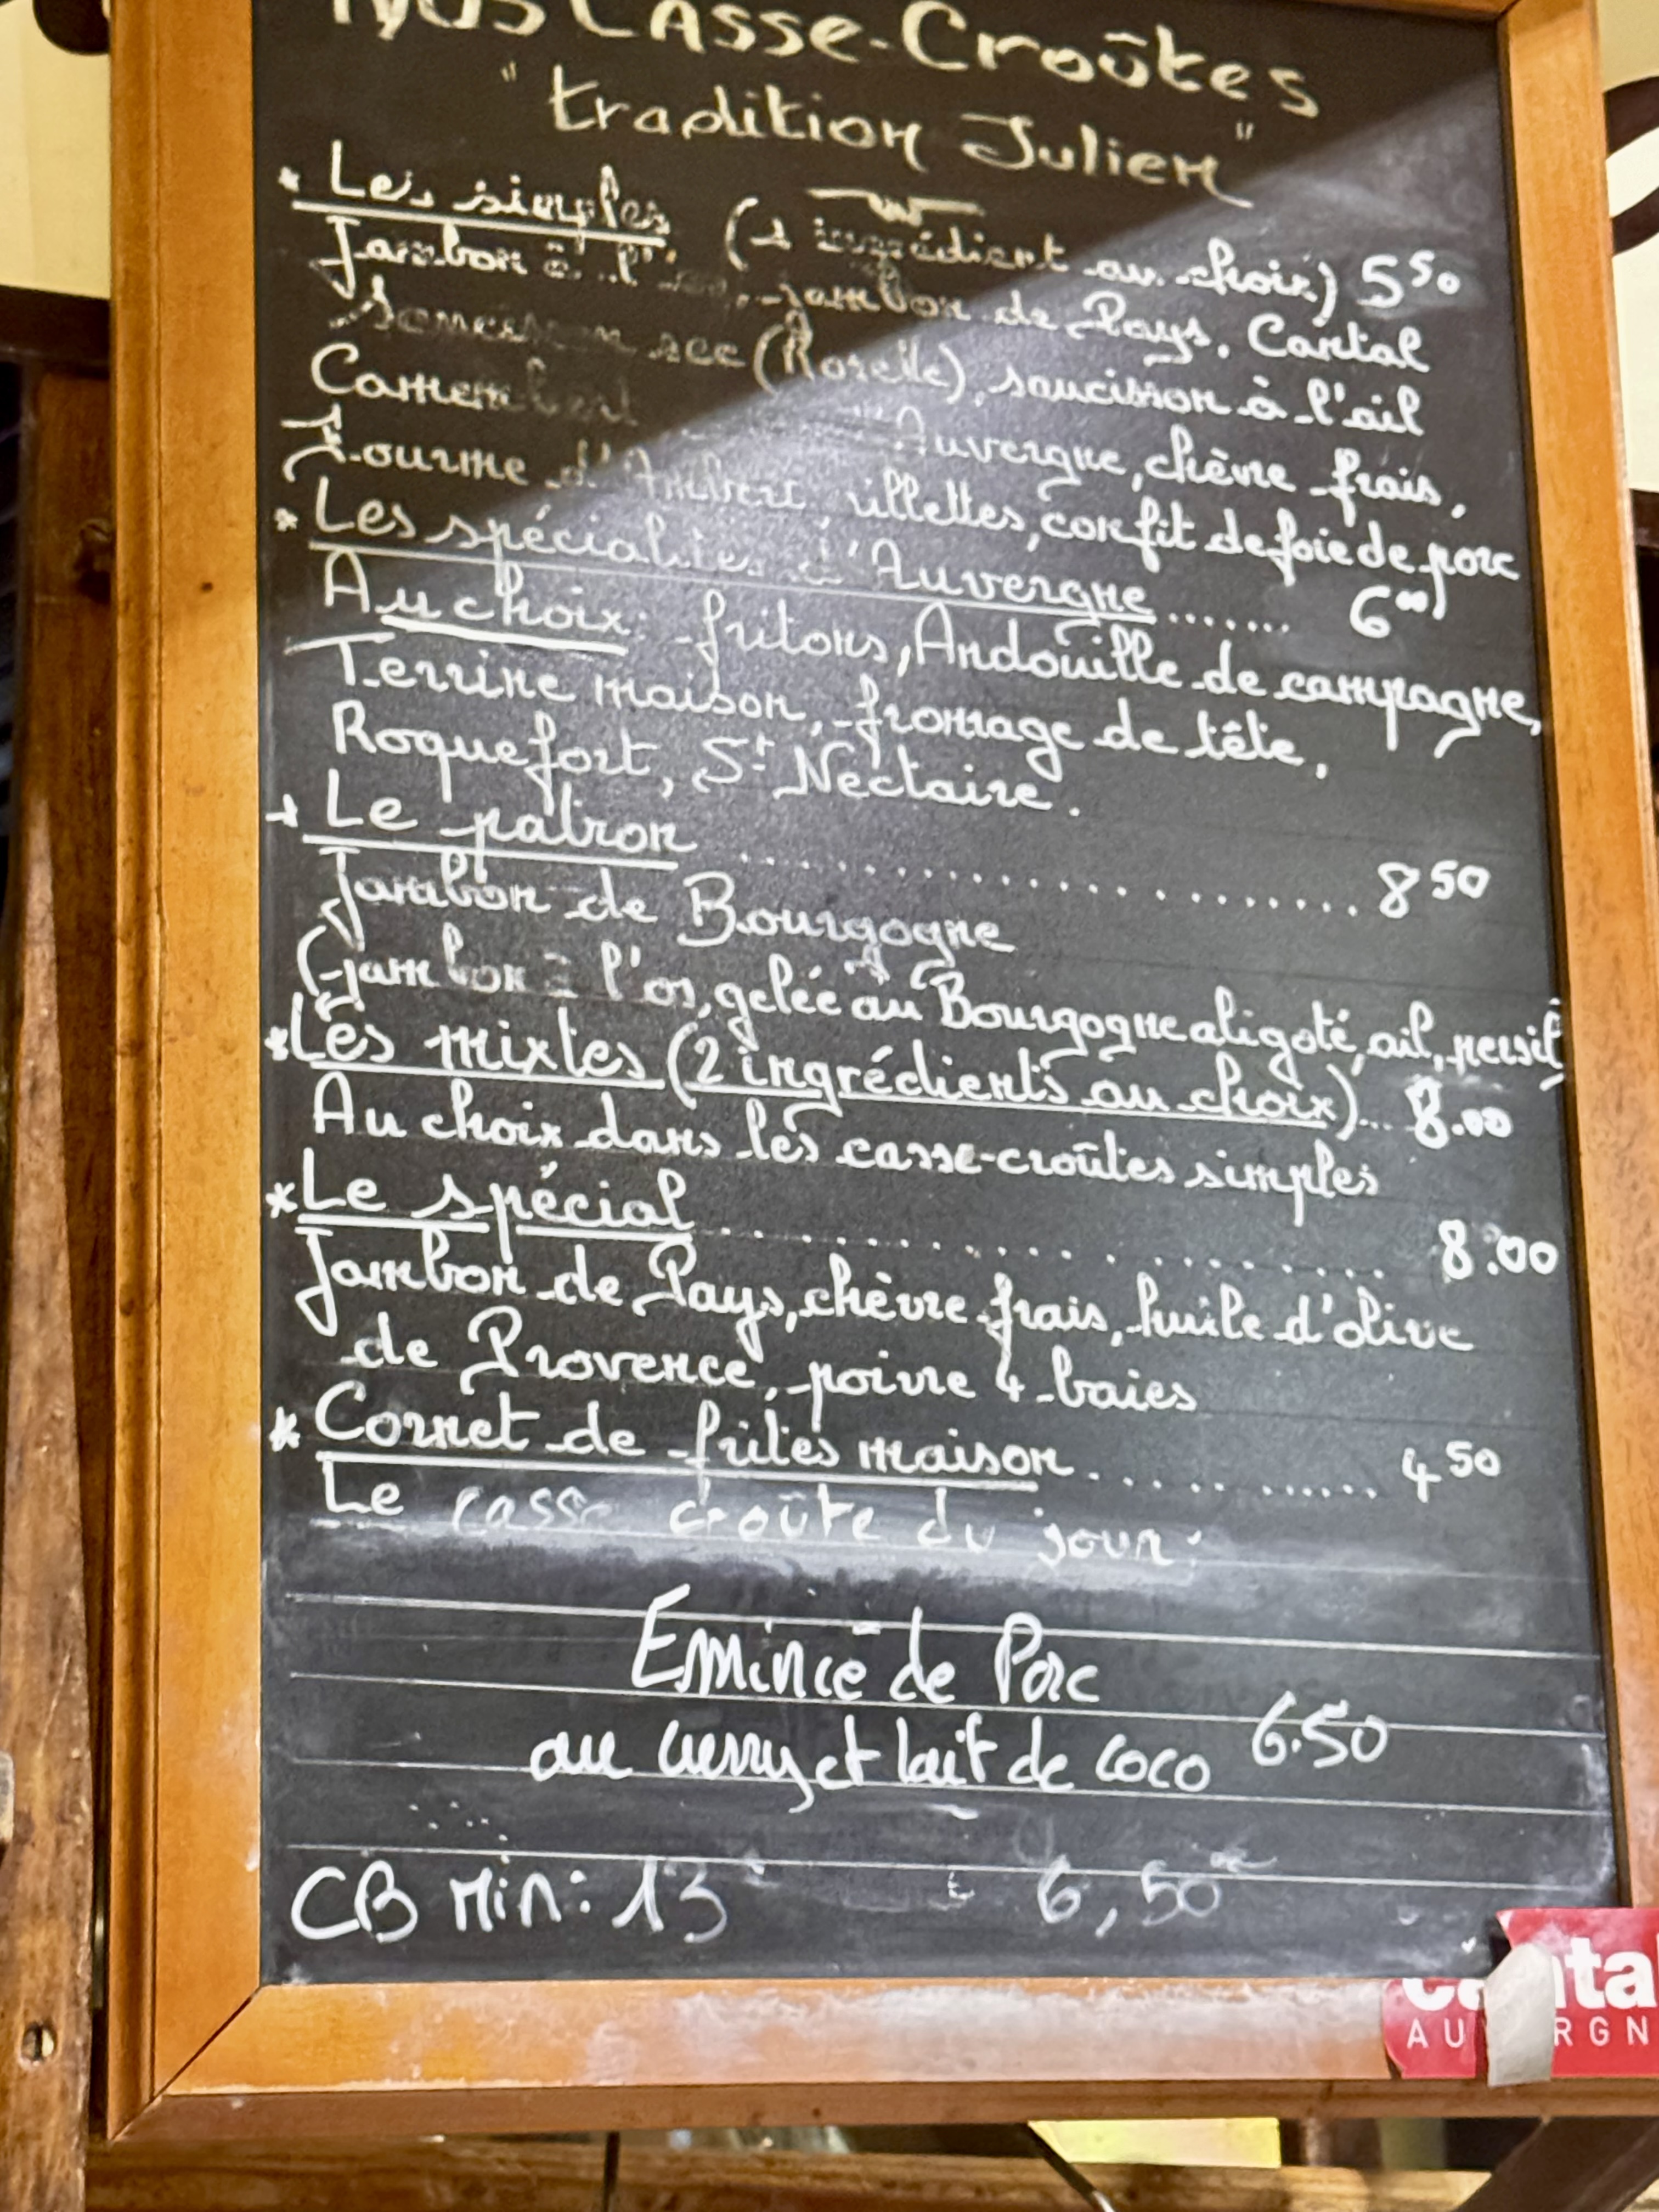 Nos Casse-Croûtes
"tradition Julien"
* Les simples (1 ingrédient au choix) 5 50
Jambon à l'os, jambon de Pays, Cantal
Saucisson sec (Rosette), saucisson à l'ail
Camembert d'Auvergne, chèvre frais,
Fourme d'Ambert, rillettes, confit de foie de porc
* Les spécialités d'Auvergne ....... 6 00
Au choix: fritons, Andouille de campagne,
Terrine maison, fromage de tête,
Roquefort, St Nectaire.
* Le patron .................... 8 50
Jambon de Bourgogne
(jambon à l'os, gelée au Bourgogne aligoté, ail, persil)
* Les mixtes (2 ingrédients au choix)... 8.00
Au choix dans les casse-croûtes simples
* Le spécial .................... 8.00
Jambon de Pays, chèvre frais, huile d'olive
de Provence, poivre 4 baies
* Cornet de frites maison ............ 4 50
Le casse croûte du jour:
Emincé de Porc
au curry et lait de coco 6.50
CB Min: 13 6,50
Cantal
AUVERGN